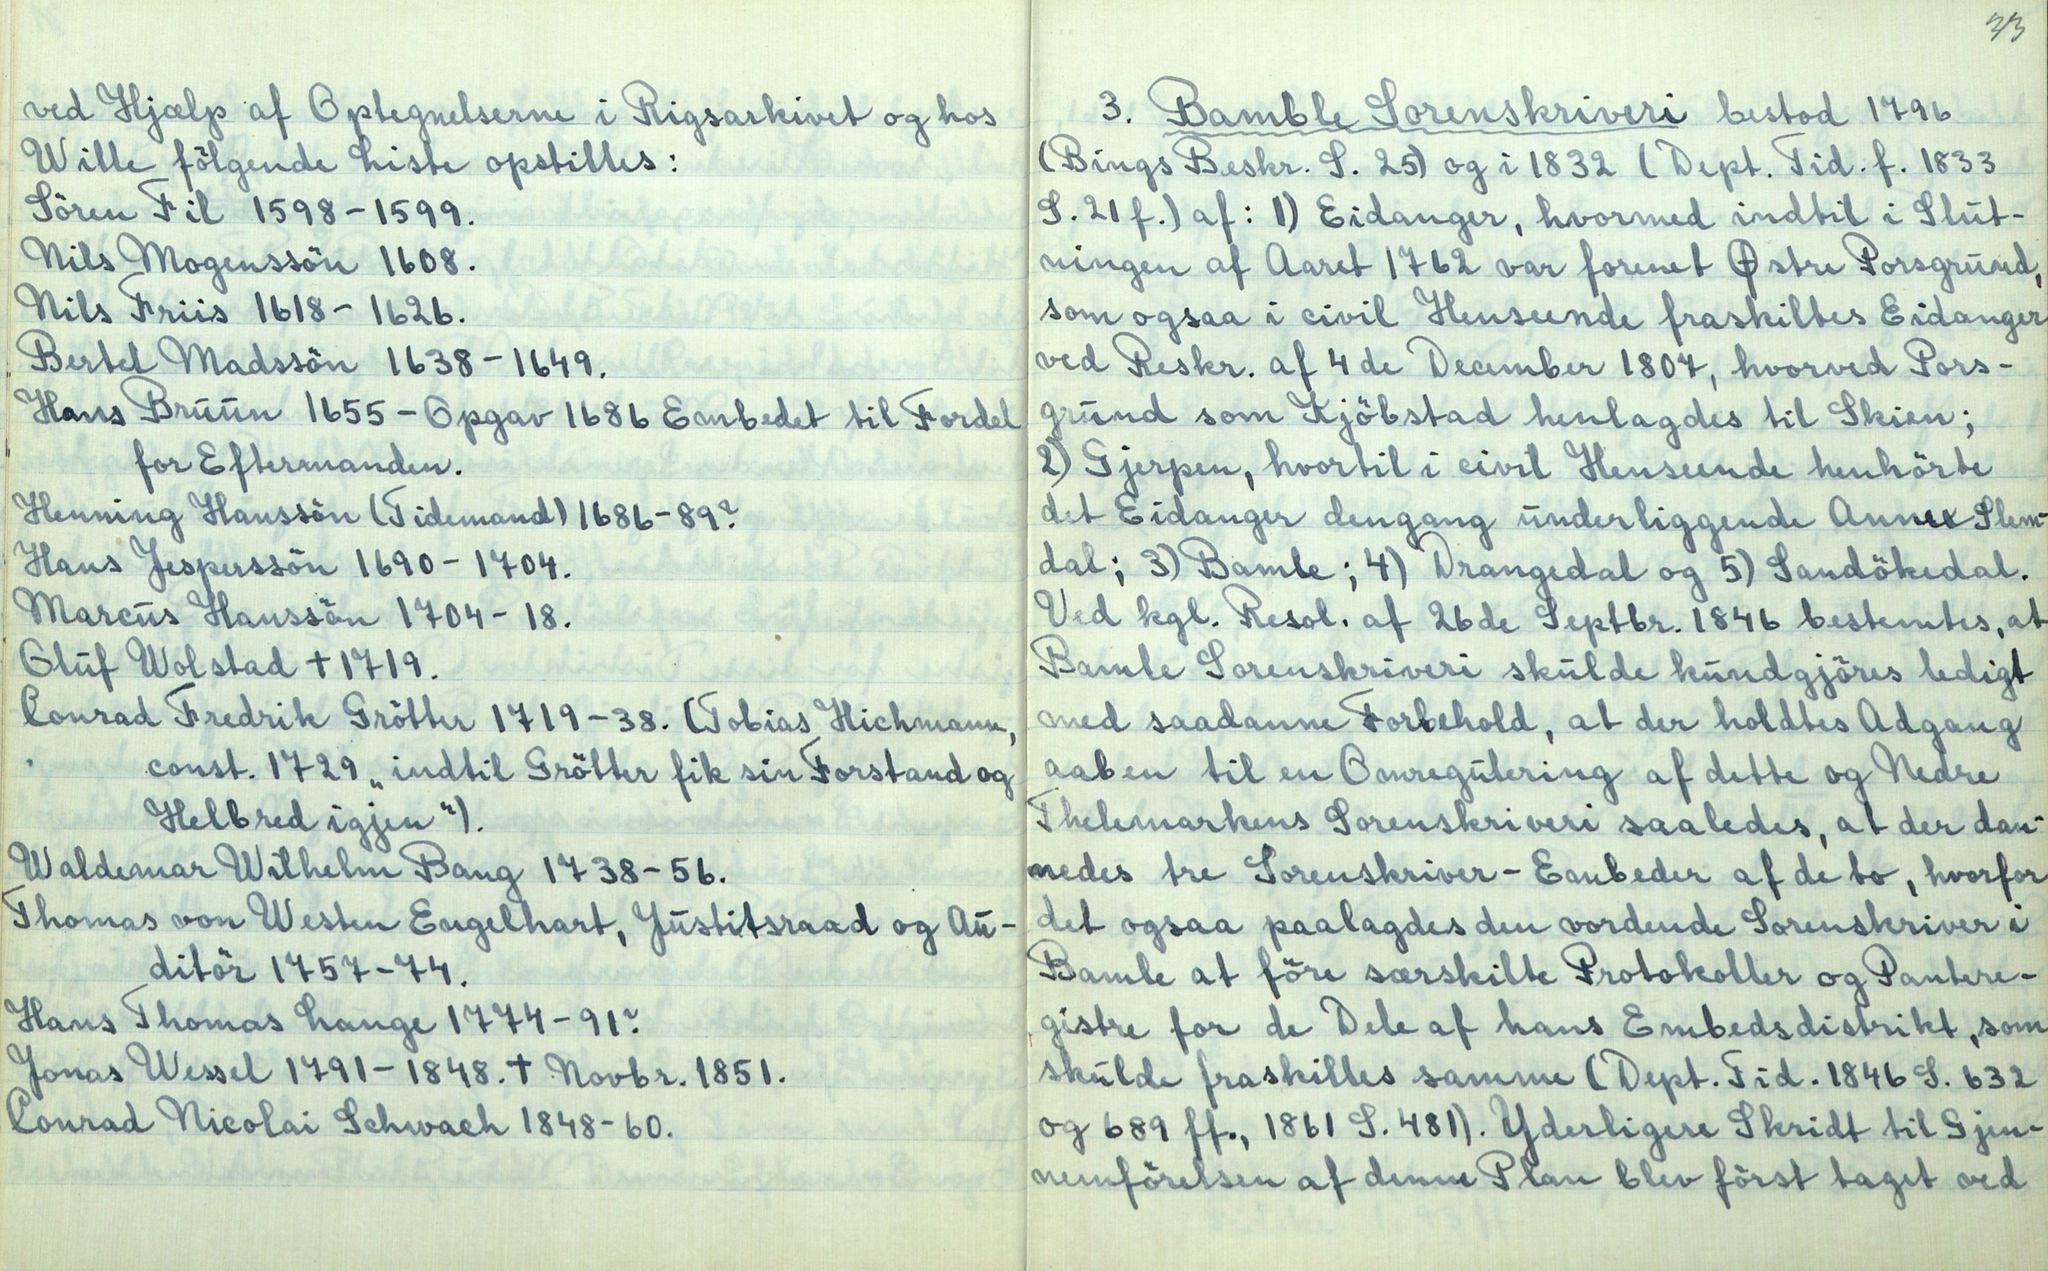 ved Hjælp af Optegnelserne i Rigsarkivet og hos
Wille fölgende Liste opstilles:
Sören Fil 1598-1599.
Nils Mogenssön 1608.
Nils Friis 1618-1626.
Bertel Madssön 1638-1649.
Hans Bruun 1655-Opgav 1686 Embedet til Fordel
for Eftermanden.
Henning Hanssön (Tidemand) 1686-89?
Hans Jesperssön 1690-1704.
Marcus Hanssön 1704-18.
Oluf Wolstad † 1719.
Conrad Fredrik Grötter 1719-38. (Tobias Hichmann,
const. 1729 „indtil Grötter fik sin Forstand og
Helbred igjen").
Waldemar Wilhelm Bang 1738-56.
Thomas von Westen Engelhart, Justitsraad og Au-
ditör 1757-74.
Hans Thomas Lange 1774-91?
Jonas Wessel 1791-1848. † Novbr. 1851.
Conrad Nicolai Schwach 1848-60.
33
3. Bamble Sorenskriveri bestod 1796
(Bings Beskr. S. 25) og i 1832 (Dept. Tid. f. 1833
S. 21 f.) af: 1) Eidanger, hvormed indtil i Slut-
ningen af Aaret 1762 var forenet Østre Porsgrund,
som ogsaa i civil Henseende fraskiltes Eidanger
ved Reskr. af 4de December 1807, hvorved Pors-
grund som Kjöbstad henlagdes til Skien;
2) Gjerpen, hvortil i civil Henseende henhörte
det Eidanger dengang underliggende Annex Slem-
dal; 3) Bamle; 4) Drangedal og 5) Sandökedal.
Ved kgl. Resol. af 26de Septbr. 1846 bestemtes, at
Bamle Sorenskriveri skulde kundgjöres ledigt
med saadanne Forbehold, at der holdtes Adgang
aaben til en Omregulering af dette og Nedre
Thelemarkens Sorenskriveri saaledes, at der dan-
nedes tre Sorenskriver-Embeder af de to, hvorfor
det ogsaa paalagdes den vordende Sorenskriver i
Bamle at före særskilte Protokoller og Pantere-
gistre for de Dele af hans Embedsdistrikt, som
skulde fraskilles samme (Dept. Tid. 1846 S. 632
og 689 ff., 1861 S. 481). Yderligere Skridt til Gjen-
nemförelsen af denne Plan blev först taget ved